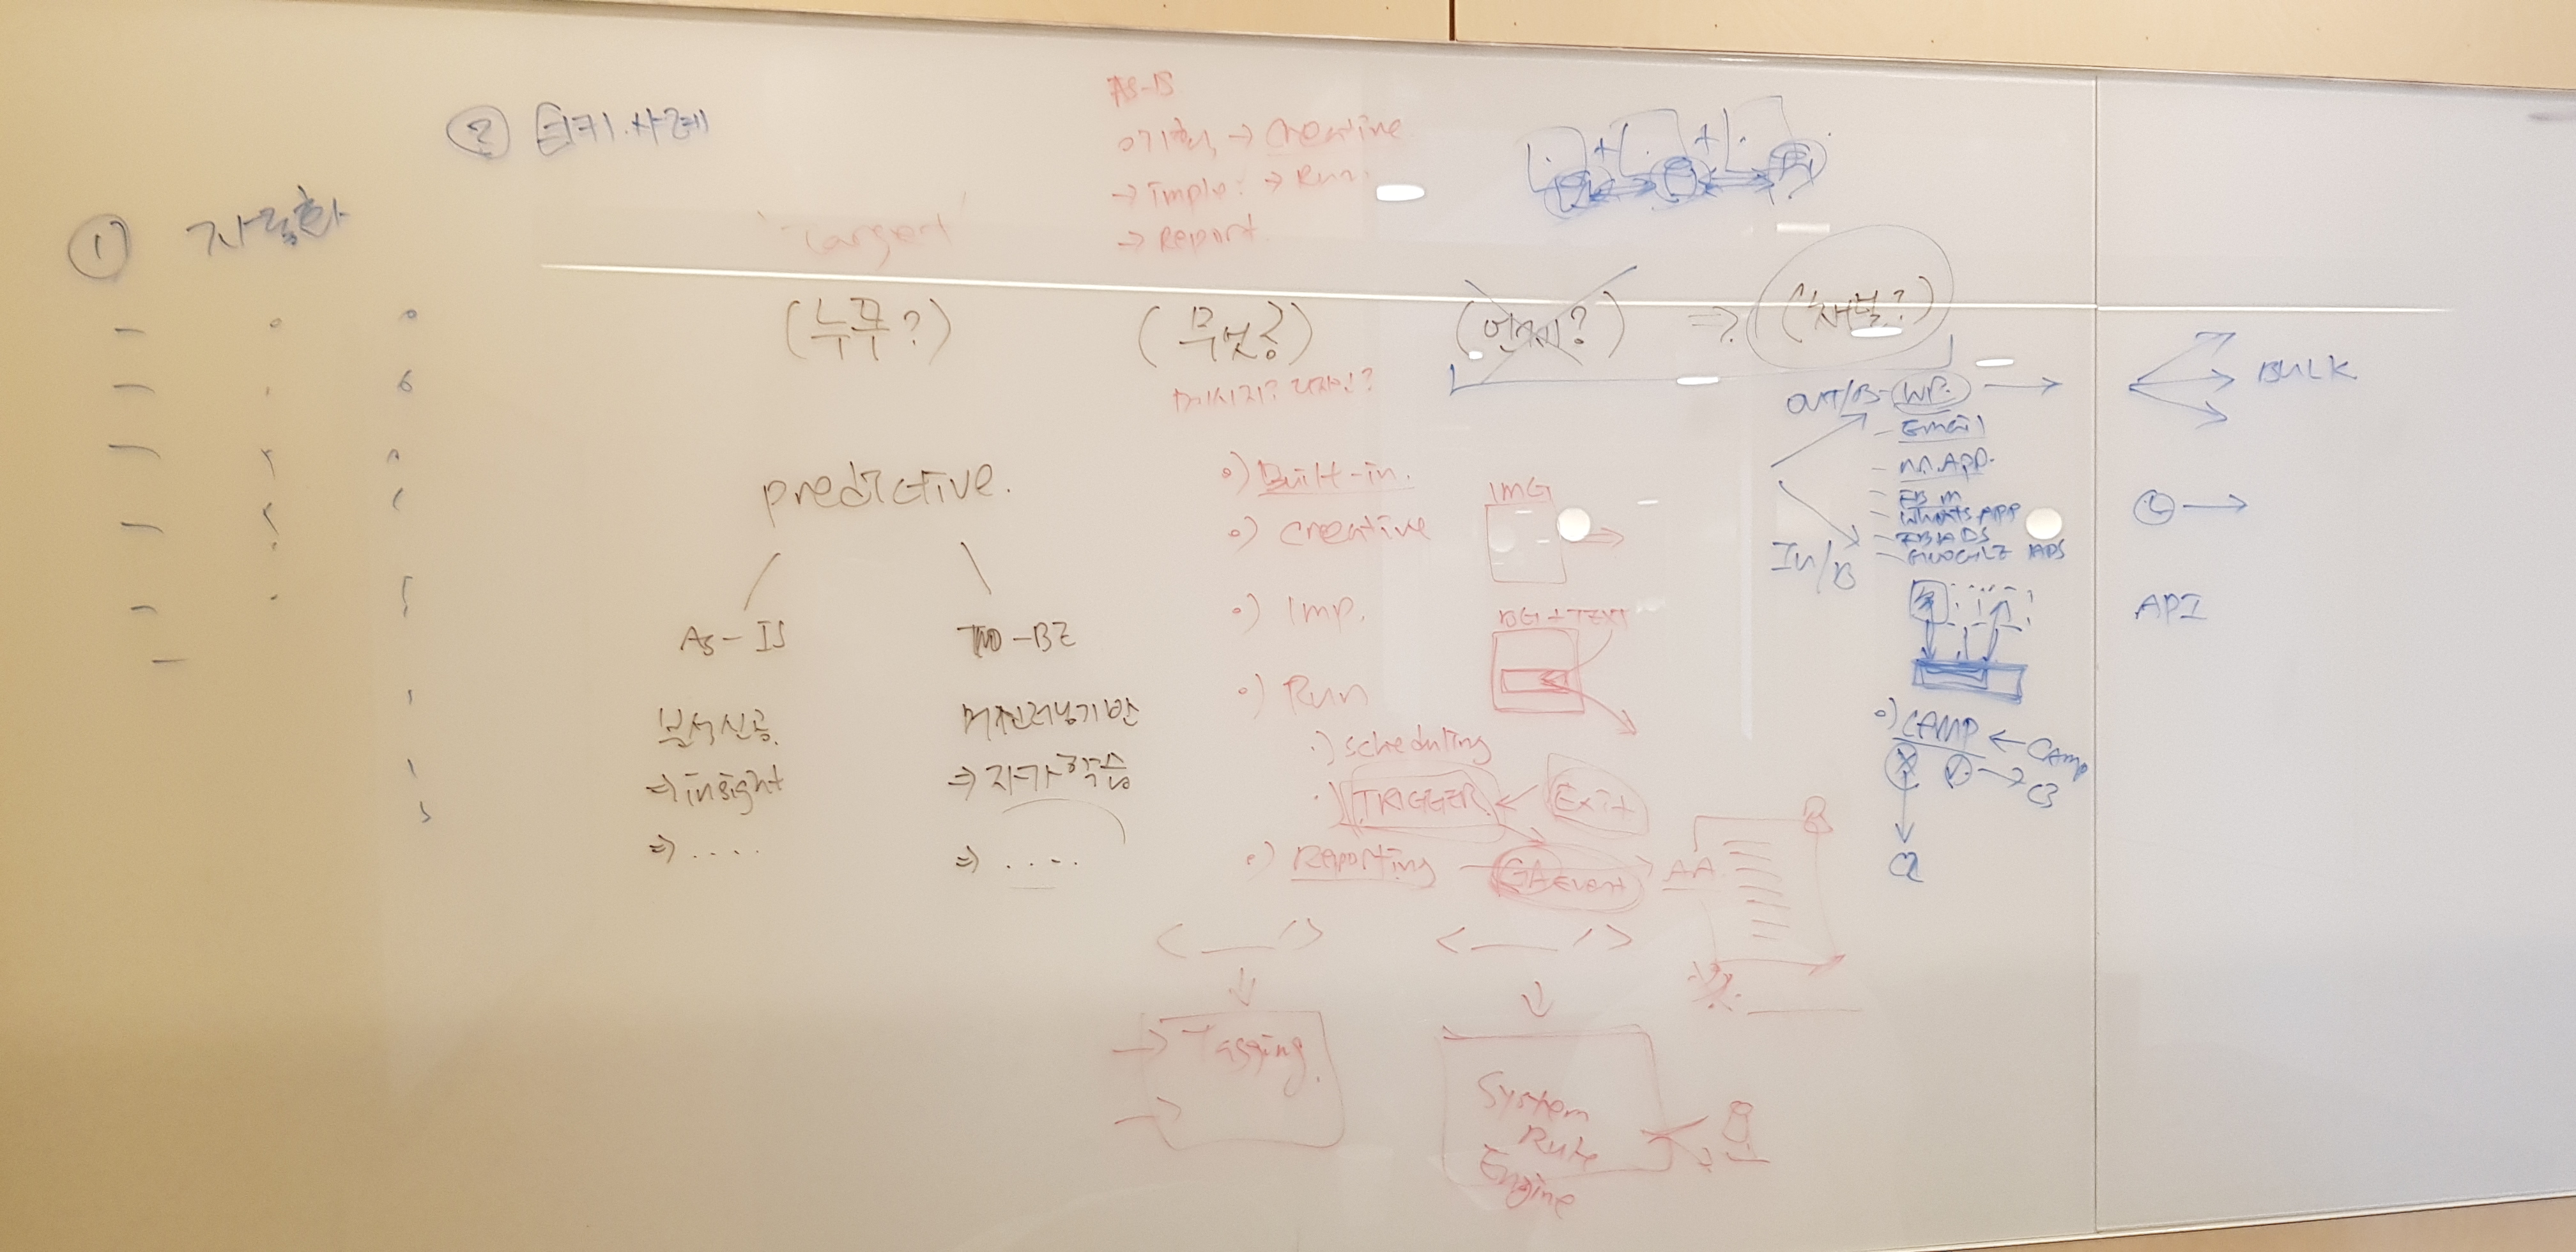 ② 터키.사례
① 자동화
AS-IS
→ creative
→ imple: → Run.
→ Report.
'target'
(누구?)
(무엇을)
(언제?) ⇒ (채널?)
메시지? 디자인?
predictive.
As-IS
TO-BE
분석
⇒ insight
⇒ ....
머신러닝기반
⇒ 자가학습
⇒ ....
∘) Built-in.
∘) creative
∘) Imp.
∘) Run
·) scheduling
·) TRIGGER ← Exit
∘) Reporting
GA Event
AA
IMG
BG + TEXT
Tagging.
System
Rule
Engine
OUT/B
In/B
- Email
- M.APP.
- FB M
- WhatsAPP
- FB ADS
- GOOGLE ADS
∘) CAMP ← CAMP
C2
C3
BULK
API